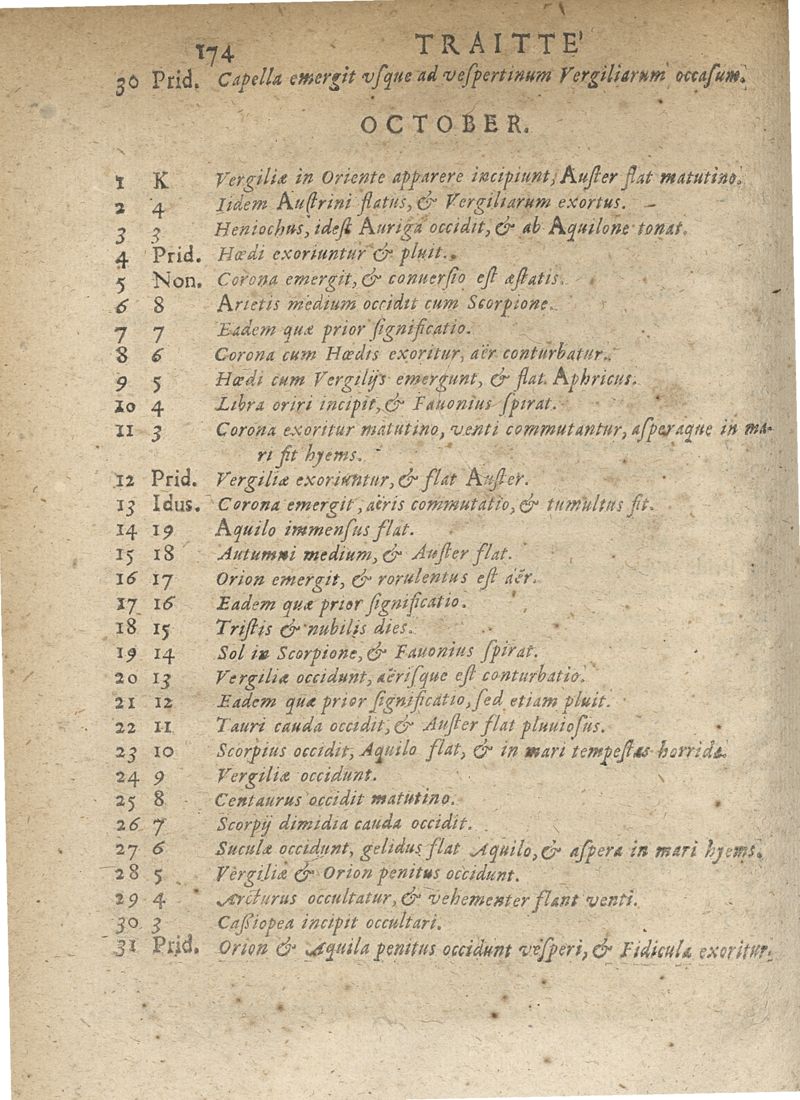 174 TRAITTE'
30 Prid. Capella emergit vſque ad veſpertinum Vergiliarum occaſum.
OCTOBER.
1 K Vergiliæ in Oriente apparere incipiunt, Auſter flat matutino.
2 4 Iidem Auſtrini flatus, & Vergiliarum exortus.
3 3 Heniochus, ideſt Auriga occidit, & ab Aquilone tonat.
4 Prid. Hœdi exoriuntur & pluit.
5 Non. Corona emergit, & conuerſio eſt æſtatis.
6 8 Arietis medium occidit cum Scorpione.
7 7 Eadem quæ prior ſignificatio.
8 6 Corona cum Hœdis exoritur, aër conturbatur.
9 5 Hœdi cum Vergilijs emergunt, & flat Aphricus.
10 4 Libra oriri incipit, & Fauonius ſpirat.
11 3 Corona exoritur matutino, venti commutantur, aſperaque in ma-
ri fit hyems.
12 Prid. Vergiliæ exoriuntur, & flat Auſter.
13 Idus. Corona emergit, aëris commutatio, & tumultus fit.
14 19 Aquilo immenſus flat.
15 18 Autumni medium, & Auſter flat.
16 17 Orion emergit, & rorulentus eſt aër.
17 16 Eadem quæ prior ſignificatio.
18 15 Triſtis & nubilis dies.
19 14 Sol in Scorpione, & Fauonius ſpirat.
20 13 Vergiliæ occidunt, aëriſque eſt conturbatio.
21 12 Eadem quæ prior ſignificatio, ſed etiam pluit.
22 11 Tauri cauda occidit, & Auſter flat pluuioſus.
23 10 Scorpius occidit, Aquilo flat, & in mari tempeſtas horrida.
24 9 Vergiliæ occidunt.
25 8 Centaurus occidit matutino.
26 7 Scorpij dimidia cauda occidit.
27 6 Suculæ occidunt, gelidus flat Aquilo, & aſpera in mari hyems.
28 5 Vergiliæ & Orion penitus occidunt.
29 4 Arcturus occultatur, & vehementer flant venti.
30 3 Caßiopea incipit occultari.
31 Prid. Orion & Aquila penitus occidunt veſperi, & Fidicula exoritur.